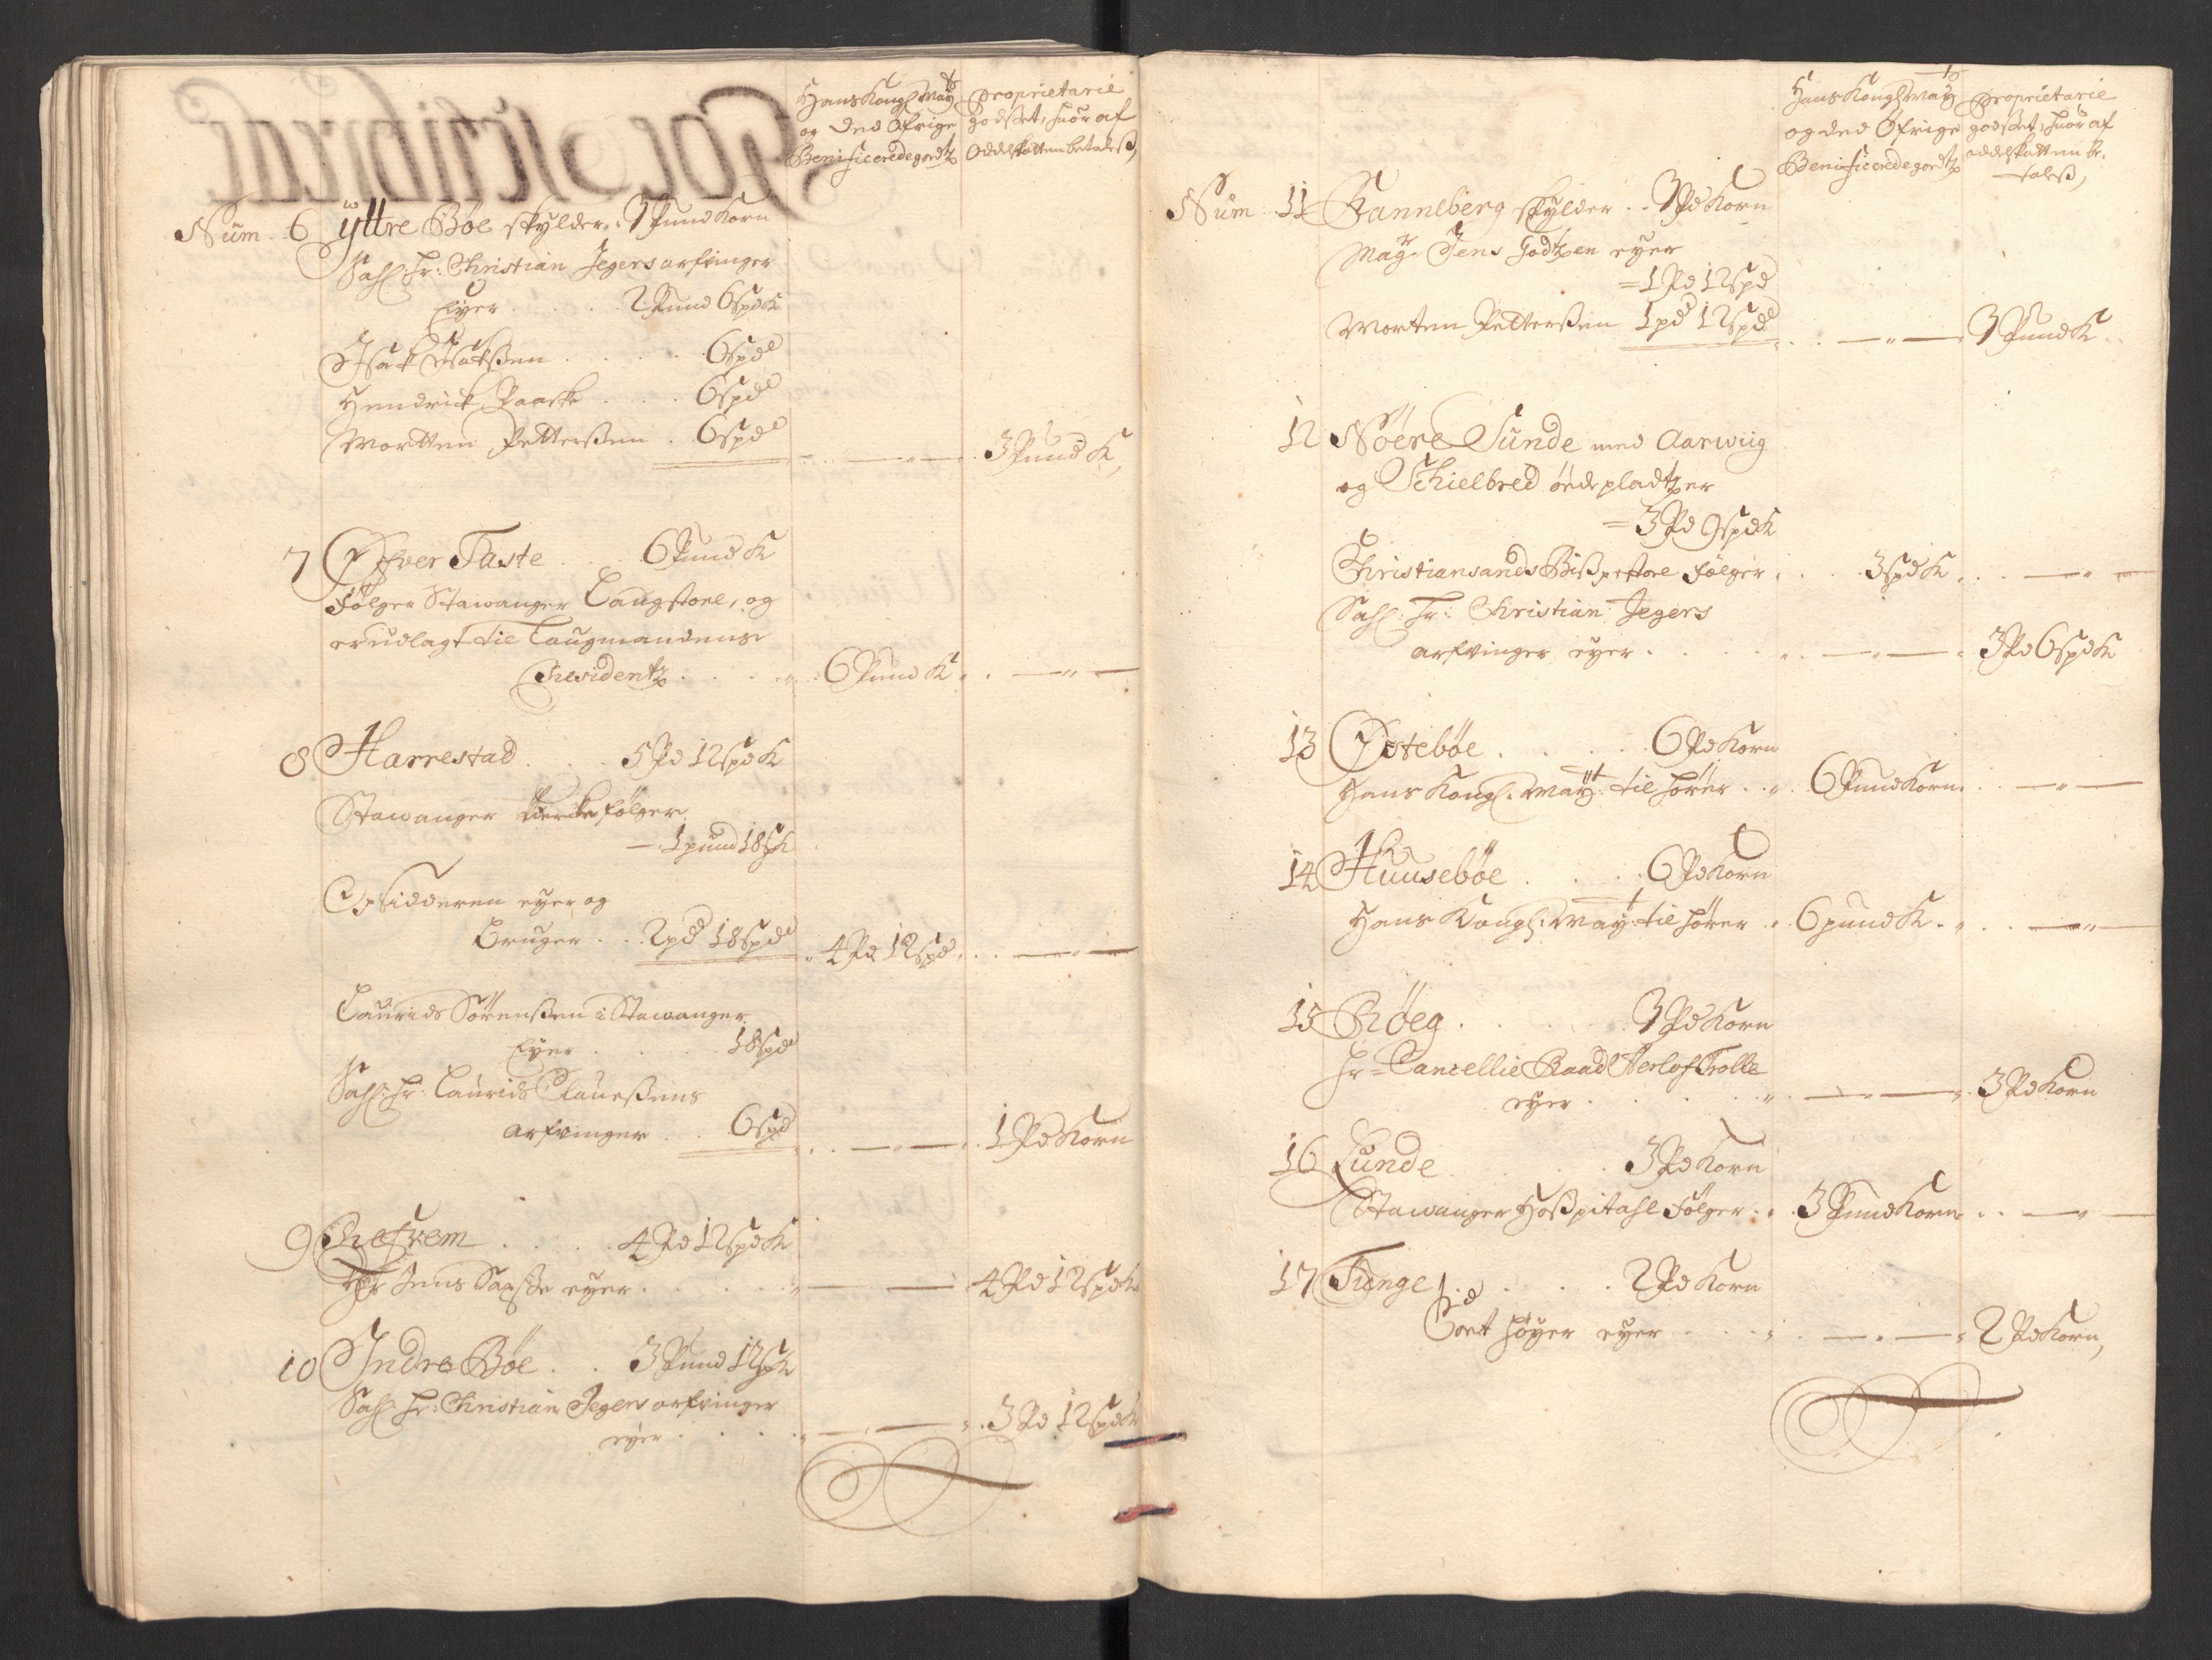 Hans Kongl May
og ded Öfrige
Benificerede godtz
Proprietarie
godset, huor af
Oddelskatten betales,
Num. 6 Yttre Bøe skylder. 3 Pund Korn
Sahl: Hr: Christian Jegers arfvinger
Eyer . . . 2 Pund 6 spd K
Isak Isaksen . . . . 6 spd
Hendrick Paaske . . . 6 spd
Mortten Pettersen . 6 spd
3 Pund K,
7 Øfver Taste . . . 6 Pund K
følger Stawanger Laugstoel, og
er udlagt til Laugmandens
Residentz . . . 6 Pund K
8 Harrestad . . . 5 Pd 12 spd K
Stawanger Kircke følger
1 pund 18 sp K
Opsidderen eyer og
Bruger . . 2 pd 18 spd 4 Pd 12 spd
Laurids Sörensen i Stawanger
Eyer . . . . 18 spd
Sahl: Hr: Laurids Clausens
arfvinger . . 6 spd 1 Pd Korn
9 Refrem . . . . 4 Pd 12 spd K
Hr Jens eyer . . . . 4 Pd 12 spd K
10 Indre Bøe . . 3 Pund 12 sp K
Sahl: Hr: Christian Jegers arfvinger
eyer . . . . 3 Pd 12 spd K
Hans Kongl May
og ded Öfrige
Benificerede godtz
Proprietarie
godset, huor af
oddelskatten be-
tales,
Num 11 Ranneberg skylder . . 3 Pd Korn
Mag. Jens Godtzen eyer
= 1 Pd 12 spd
Morten Pettersen 1 pd 12 spd 3 Pund K
12 Nöere Sunde med Aarwiig
og Schielbred øede pladtzer
= 3 Pd 9 spd K
Christiansands Bispestoel følger . . . 3 spd K
Sahl: Hr: Christian Jegers
arfvinger eyer . . . 3 Pd 6 spd K
13 Østebøe . . . . 6 Pd Korn
Hans Kongl: May: tilhører . . 6 Pund Korn
14 Huusebøe . . . . 6 Pd Korn
Hans Kongl: May: tilhører . 6 pund K
15 Røeg . . . . 3 Pd Korn
Hr Cancellie Raad Herlof Trolle
eyer . . . . 3 Pd Korn
16 Lunde . . . . 3 Pd Korn
Stawanger Hospitahl følger . . 3 Pund Korn
17 Tunge . . . . 2 Pd Korn
Cort Höyer eyer . . . 2 Pd Korn,